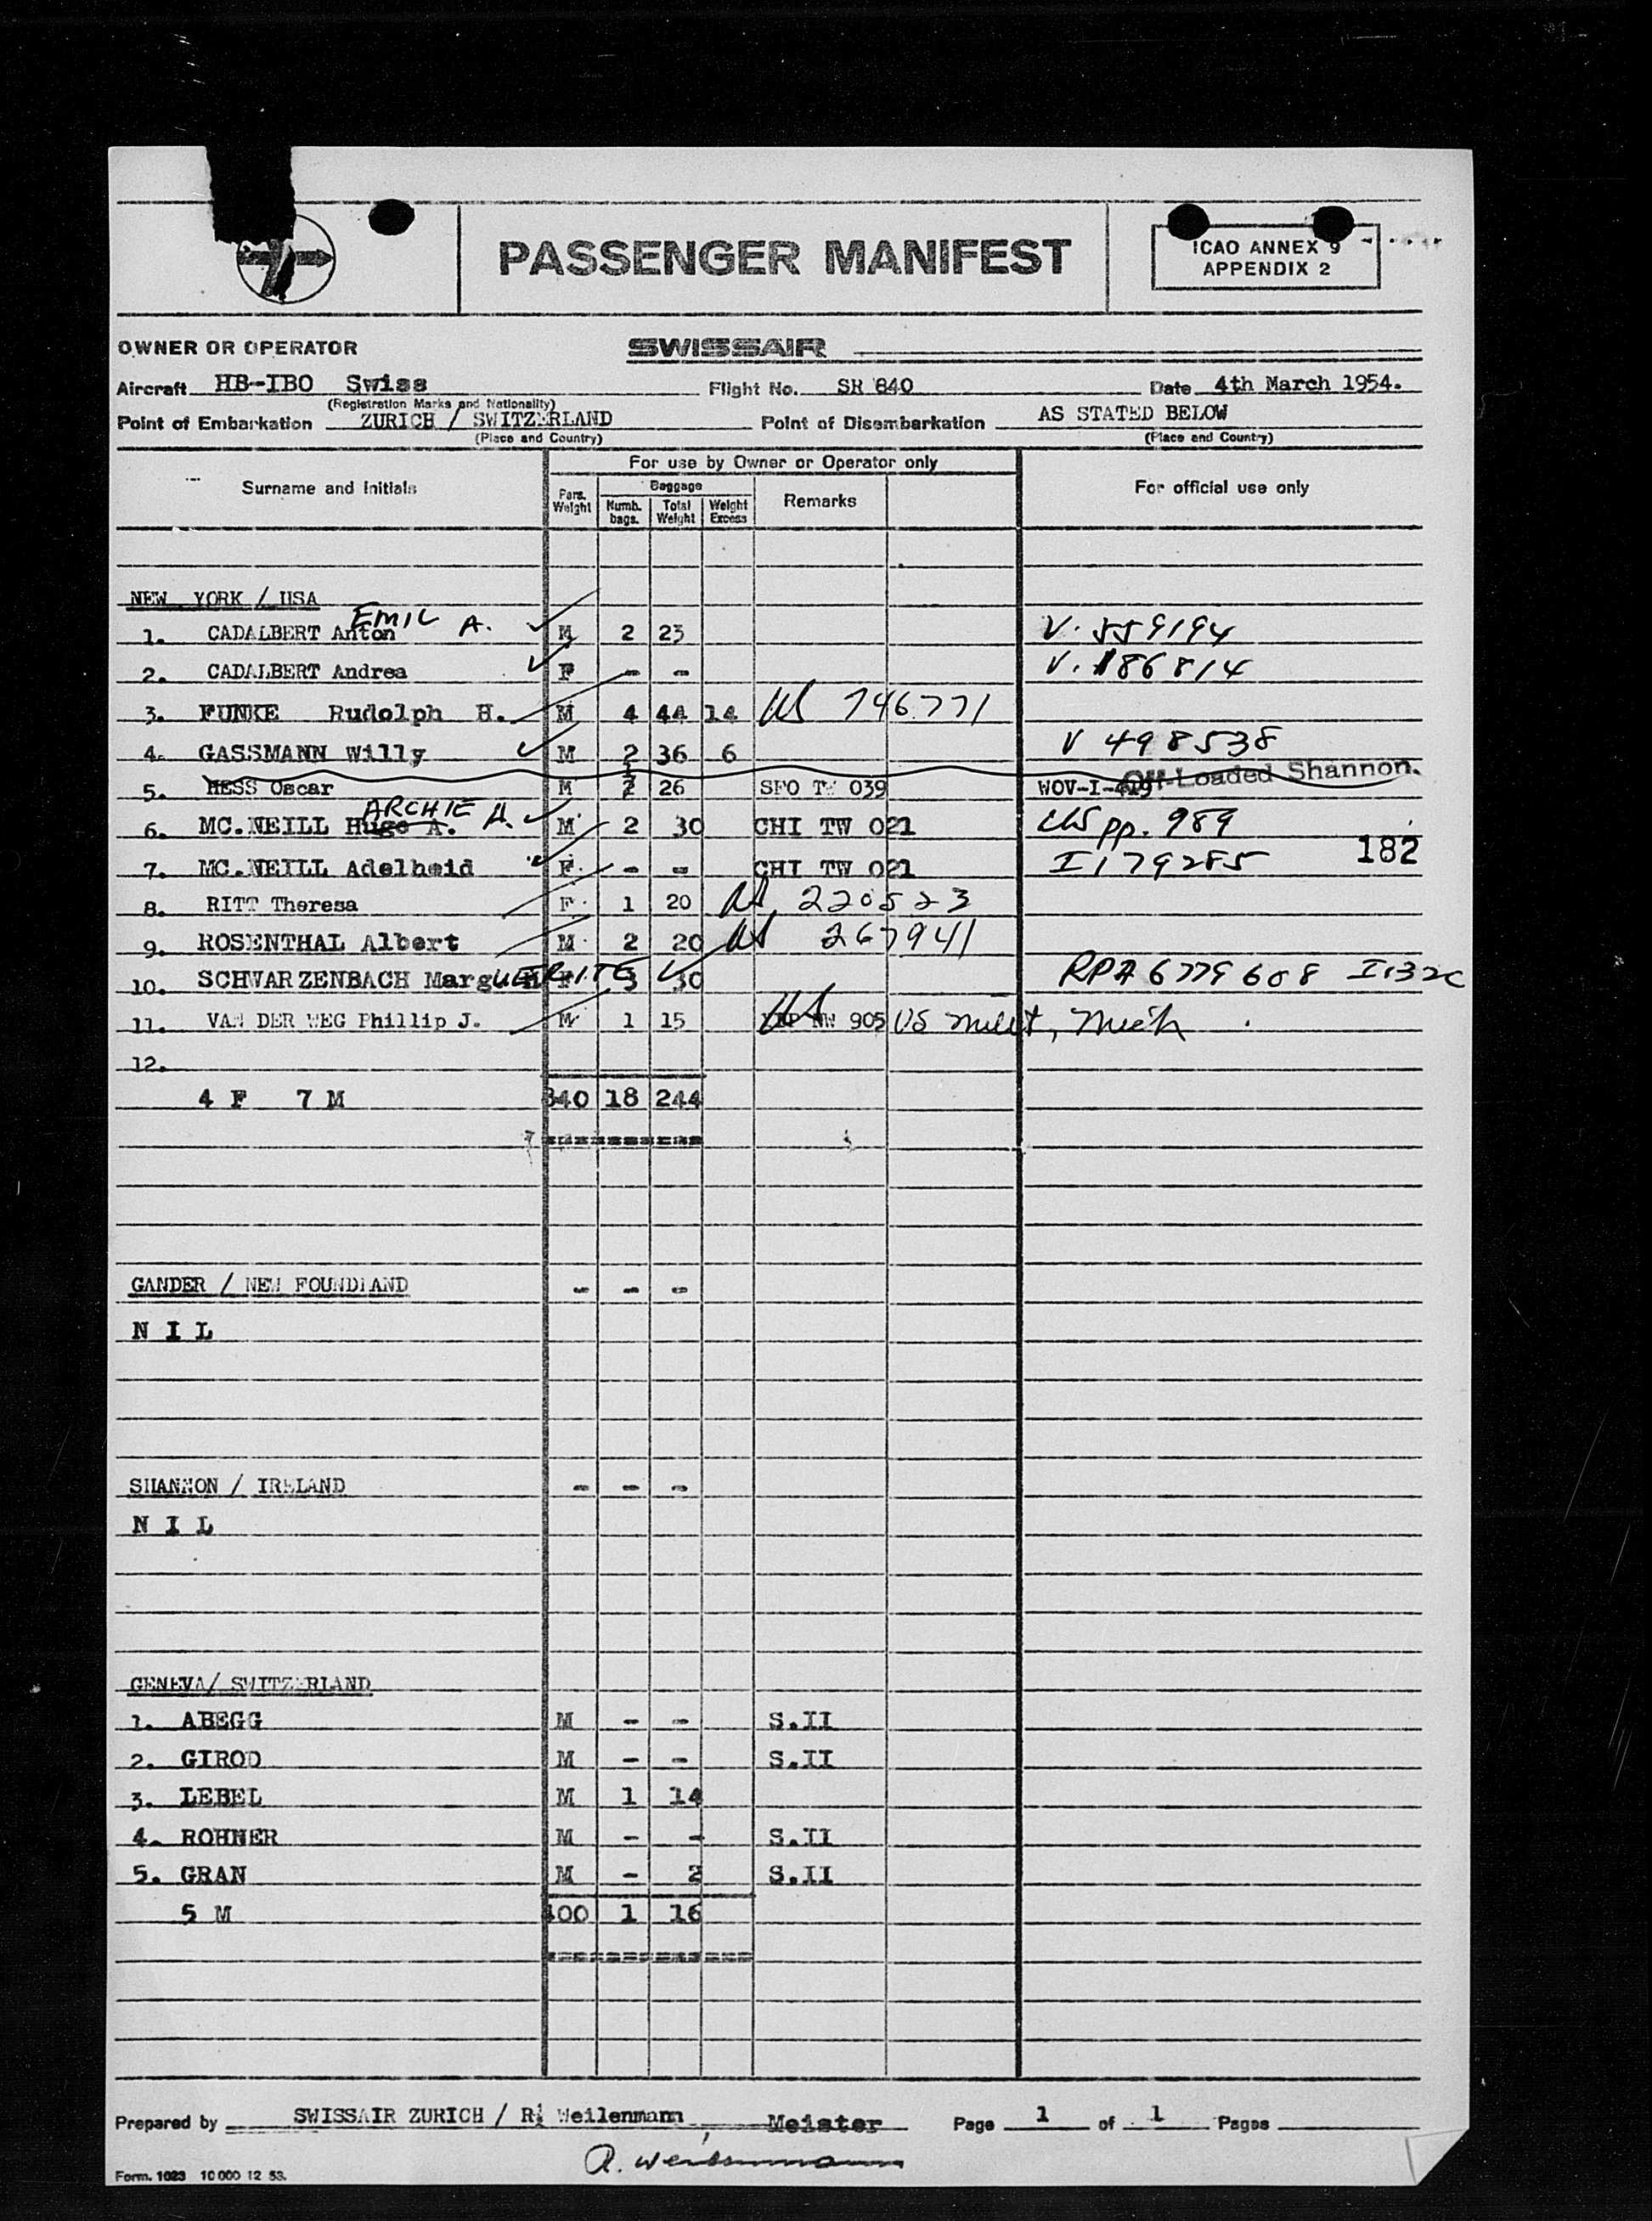 PASSENGER MANIFEST
ICAO ANNEX 9
APPENDIX 2
OWNER OR OPERATOR SWISSAIR
Aircraft HB-IBO Swiss Flight No. SR 840 Date 4th March 1954.
(Registration Marks and Nationality)
Point of Embarkation ZURICH / SWITZERLAND Point of Disembarkation AS STATED BELOW
(Place and Country) (Place and Country)
For use by Owner or Operator only
Surname and Initials Pers. Weight Baggage Numb. bags. Total Weight Weight Excess Remarks For official use only
NEW YORK / USA
EMIL A.
1. CADALBERT Anton M 2 23 V. 559194
2. CADALBERT Andrea F - - V. 186814
3. FUNKE Rudolph H. M 4 44 14 US 746771
4. GASSMANN Willy M 2 36 6 V 498538
Off-Loaded Shannon.
5. HESS Oscar M 2 26 SFO TW 039 WOV-I-419
ARCHIE H.
6. MC.NEILL Hugo A. M 2 30 CHI TW 021 US pp. 989
7. MC.NEILL Adelheid F - - CHI TW 021 I 179285 182
8. RITT Theresa F 1 20 US 220523
9. ROSENTHAL Albert M 2 20 US 267941
10. SCHWARZENBACH MargUERITE F 3 30 RPA 6779608 I-132c
11. VAN DER WEG Phillip J. M 1 15 US NW 905 US milit,
12.
4 F 7 M 840 18 244
GANDER / NEW FOUNDLAND - - -
N I L
SHANNON / IRELAND - - -
N I L
GENEVA/ SWITZERLAND
1. ABEGG M - - S.II
2. GIROD M - - S.II
3. LEBEL M 1 14
4. ROHNER M - - S.II
5. GRAN M - 2 S.II
5 M 400 1 16
Prepared by SWISSAIR ZURICH / R. Weilenmann, Meister Page 1 of 1 Pages
R. Weilenmann
Form. 1023 10 000 12 53.